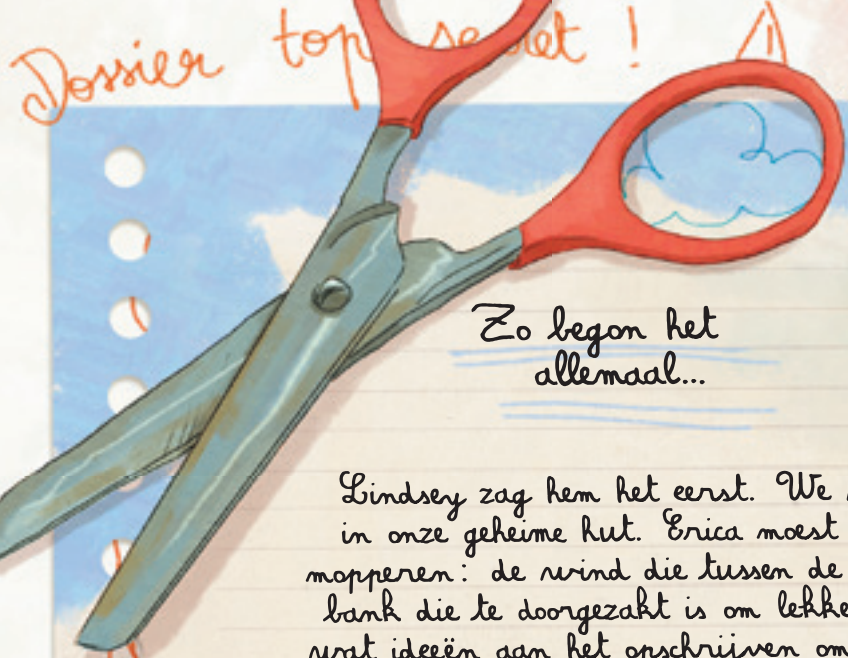 Dossier top secret !
Zo begon het
allemaal...
Lindsey zag hem het eerst. We
in onze geheime hut. Erica moest
mopperen: de wind die tussen de
bank die te doorgezakt is om lekke
wat ideeën aan het opschrijven om